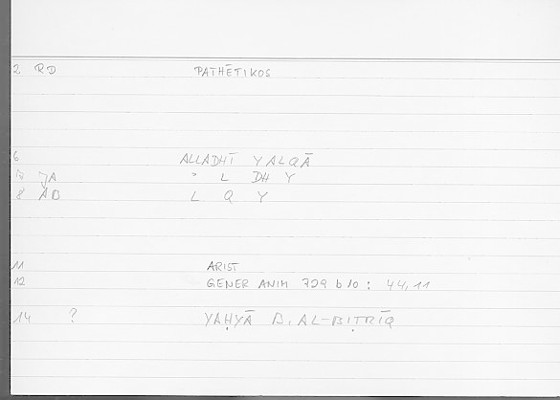 2 RD PATHĒTIKOS
6 ALLADHĪ YALQĀ
7 JA " L DH Y
8 AB L Q Y
11 ARIST
12 GENER ANIM 729 b 10 : 44,11
14 ? YAḤYĀ B. AL-BIṬRĪQ